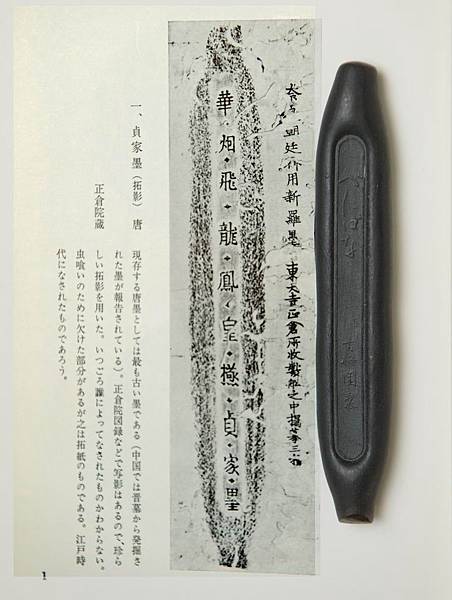 新羅墨 東大寺正倉所收
華烟飛龍鳳皇極貞家墨
一、貞家墨（拓影） 唐
正倉院蔵
現存する唐墨としては最も古い墨である（中国では晋墓から発掘さ
れた墨が報告されている）。正倉院図録などで写影はあるので、珍ら
しい拓影を用いた。いつごろ誰によってなされたものかわからない。
虫喰いのために欠けた部分があるが之は拓紙のものである。江戸時
代になされたものであろう。
1